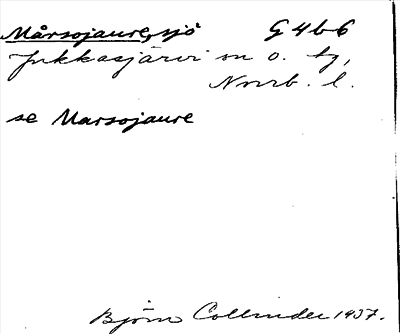 Mårsojaure, sjö G 4 b 6
Jukkasjärvi sn o. tg,
Norrb. l.
se Marsojaure
Björn Collinder 1937.